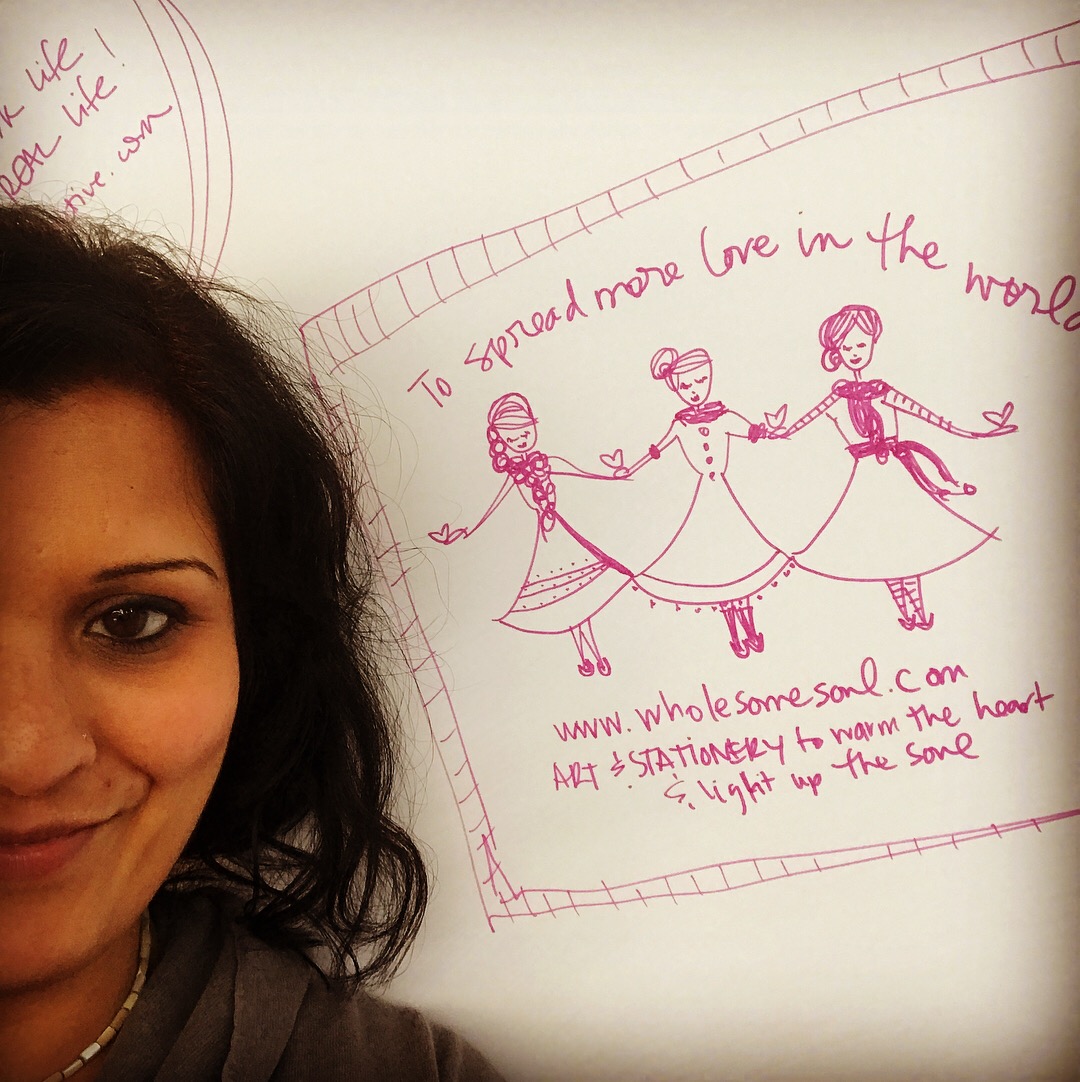 life
REAL life!
tive.com
To spread more love in the world
www.wholesomesoul.com
ART & STATIONERY to warm the heart
& light up the soul